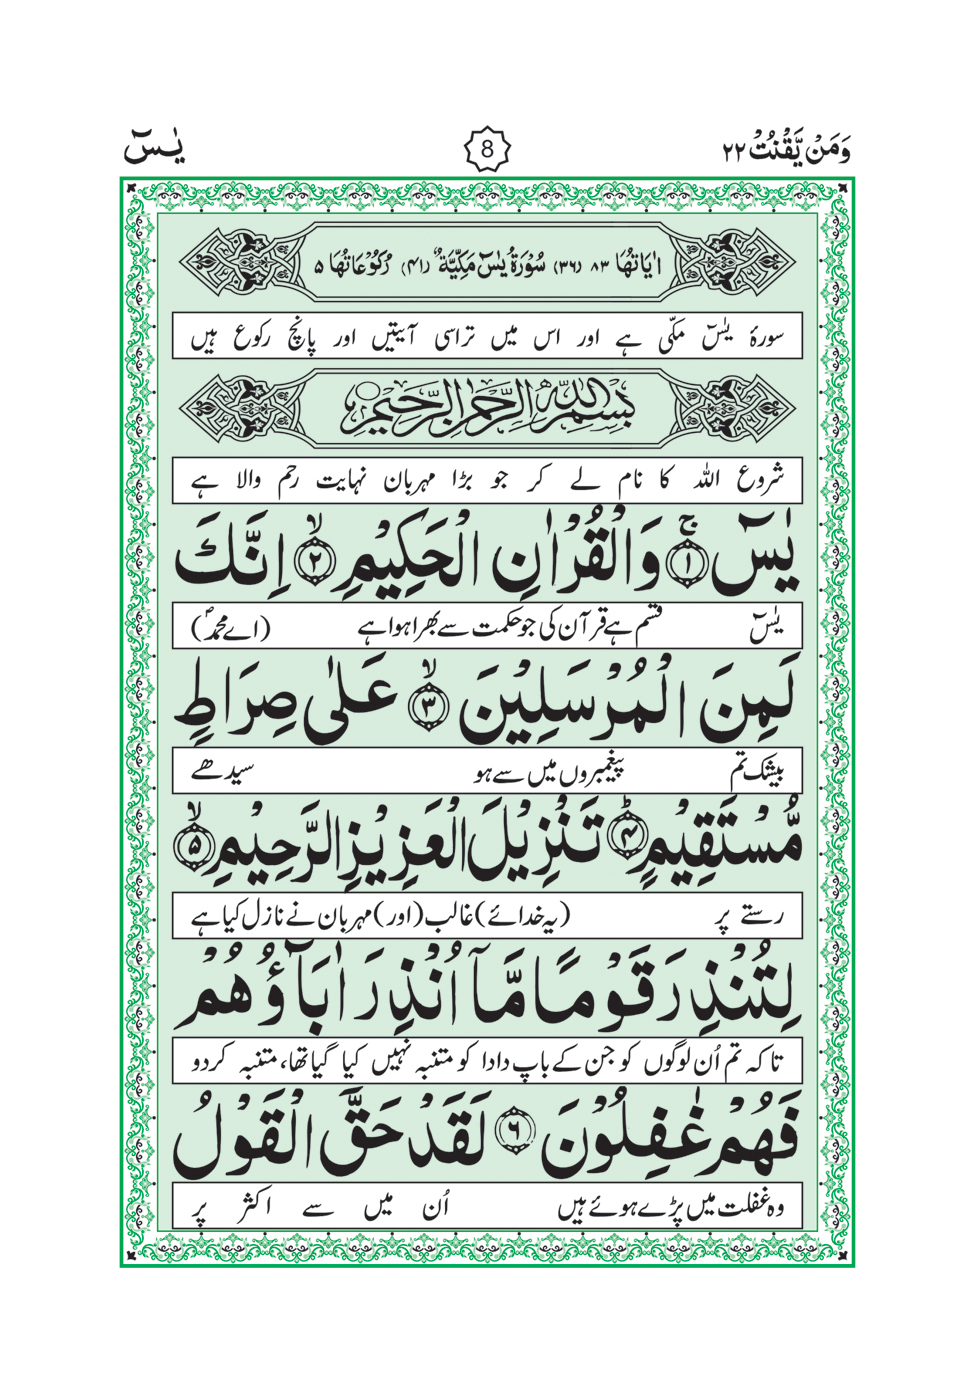 وَمَنْ يَّقْنُتْ ٢٢ 8 يٰسٓ
اٰيَاتُهَا ٨٣ (٣٦) سُوْرَةُ يٰسٓ مَكِّيَّةٌ (٤١) رُكُوْعَاتُهَا ٥
سورۂ یٰسٓ مکّی ہے اور اس میں تراسی آیتیں اور پانچ رکوع ہیں
بِسْمِ اللّٰهِ الرَّحْمٰنِ الرَّحِيْمِ
شروع اللہ کا نام لے کر جو بڑا مہربان نہایت رحم والا ہے
يٰسٓ ۚ﴿١﴾ وَالْقُرْاٰنِ الْحَكِيْمِ ۙ﴿٢﴾ اِنَّكَ
یٰسٓ قسم ہے قرآن کی جو حکمت سے بھرا ہوا ہے (اے محمدؐ)
لَمِنَ الْمُرْسَلِيْنَ ۙ﴿٣﴾ عَلٰى صِرَاطٍ
بیشک تم پیغمبروں میں سے ہو سیدھے
مُّسْتَقِيْمٍ ؕ﴿٤﴾ تَنْزِيْلَ الْعَزِيْزِ الرَّحِيْمِ ۙ﴿٥﴾
رستے پر (یہ خدائے) غالب (اور) مہربان نے نازل کیا ہے
لِتُنْذِرَ قَوْمًا مَّآ اُنْذِرَ اٰبَآؤُهُمْ
تاکہ تم اُن لوگوں کو جن کے باپ دادا کو متنبہ نہیں کیا گیا تھا، متنبہ کردو
فَهُمْ غٰفِلُوْنَ ﴿٦﴾ لَقَدْ حَقَّ الْقَوْلُ
وہ غفلت میں پڑے ہوئے ہیں اُن میں سے اکثر پر